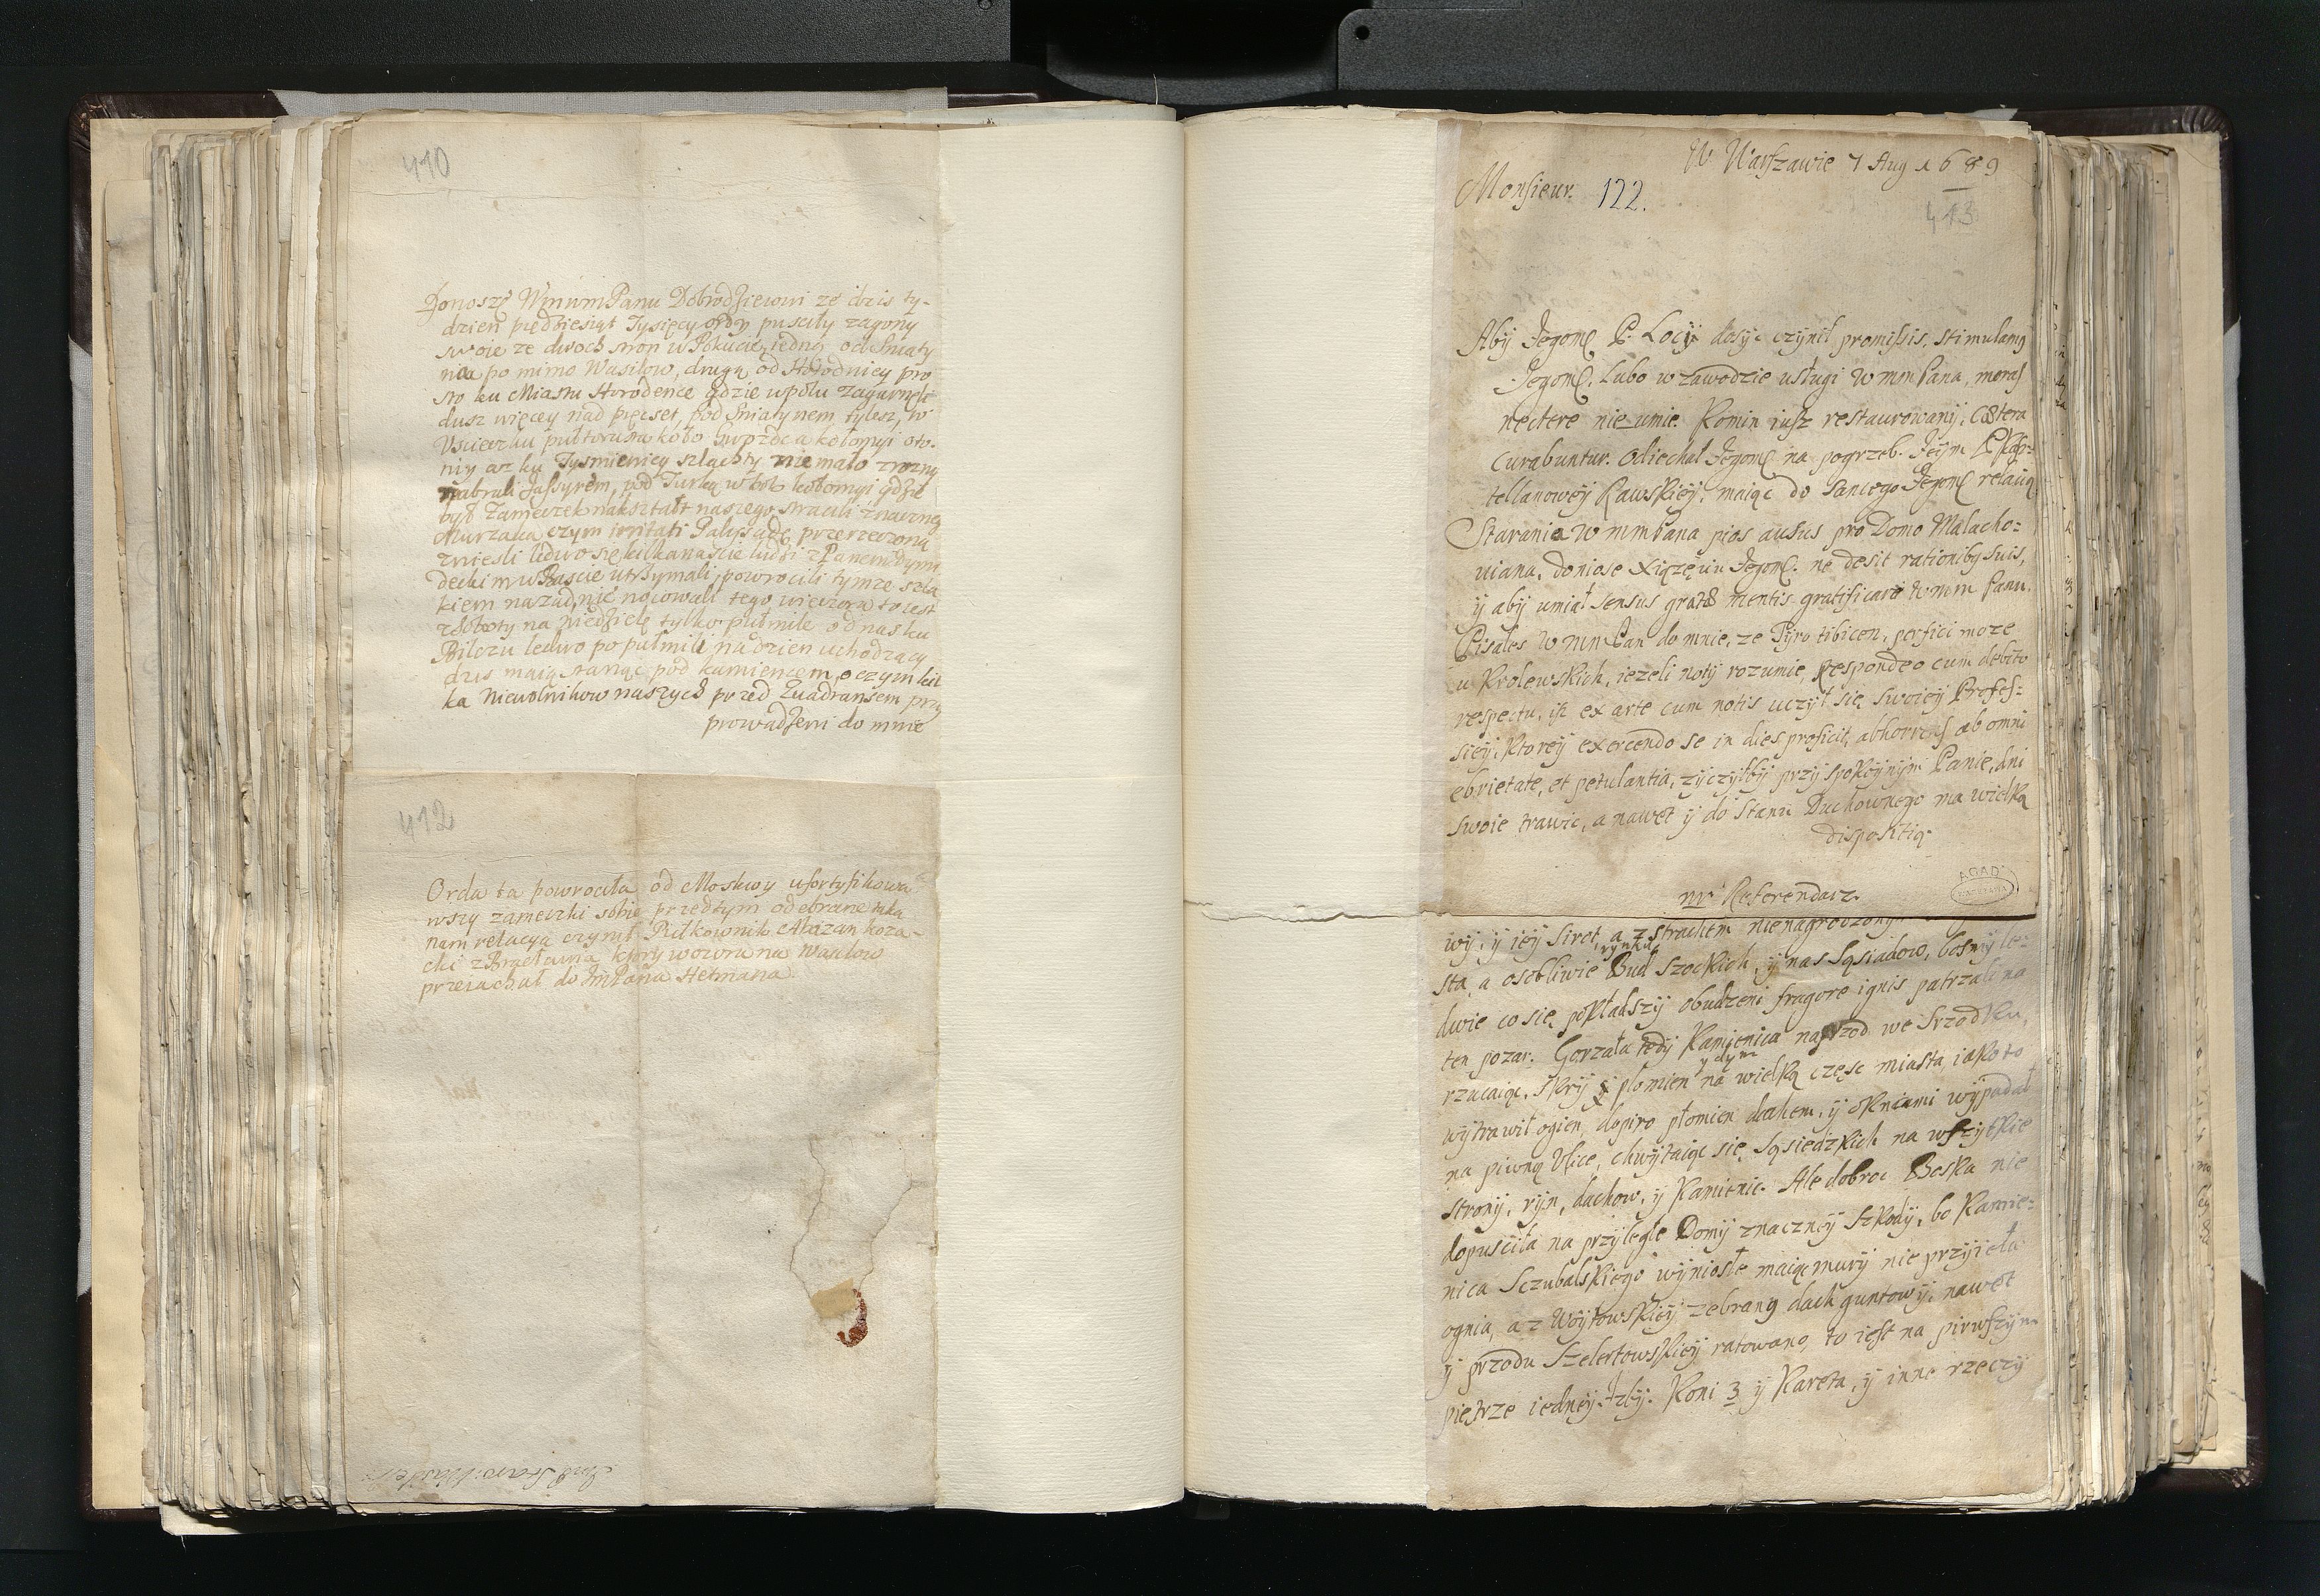 410
Donoszę WmmmPanu Dobrodziejowi ze dzis ty-
dzien pięcdziesiąt Tysięcy ordy puscily zagony
swoie ze dwoch stron w Pokucie, iedną od Sniaty
nia po mimo Wasilow, drugą od Horodnicy pro
sto ku Miastu Horodence gdzie wpolu zagarneli
dusz więcey nad pięcset, pod Sniatynem tylesz, w
Uscieczku pułtorasta koło Gwozdca kołomyi oto-
niy asz ku Tysmienicy szlachty nie mało
nabrali Jassyrem, pod Turką w bok kołomyi gdzie
był Zameczek nakształt naszego stracili znaczneg
Murzaka czym irritati Palissadę przerzeczoną
zniesli ledwo się kilkanascie ludzi z Panem Dymi
deckim w Basćie utrzymali, powrocili tymze szla
kiem nazad, nic nocowali tego wieczora to iest
zSoboty na Niedzielę tylko pułmile od nas ku
Bilczu ledwo po pułmili na dzien uchodzący
dzis maią stanąc pod kamiencem, o czym kil
ka Niewolnikow naszych przed Quadransem przy
prowadzeni do mnie
412
Orda ta powrocila od Moskwy ufortyfikowa
wszy zameczki sobie przedtym odebrane taka
nam relacya czynił Pułkownik Abazan koza-
cki z Bracławia ktory wczora na Wasilow
przeiachał do JmPana Hetmana
W Warszawie 7 Aug 1689
Monsieur. 122.
413
Aby Jegomć P. Locij dosyc czynił promissis, stimulamq
Jegomć. Lubo w zawodzie usługi WmmPana, moras
nectere nie umie. Komin iusz restaurowanij, Cætera
curabuntur. Odiechał Jegomć na pogrzeb Jeijm P. Kasz:
tellanowey Rawskiey, maiąc do Sanctego Jegomć relacią
Staranie WmmPana pios ausus pro Domo Malacho:
uiana, doniose Xiązęciu Jegomć. ne desit rationibq suis,
ij abij umiał sensus gratæ mentis gratificare Wmm Panu.
Pisałes WmmPan do mnie, ze Pijro tibicen, perfici moze
u Krolewskich, iezeli noty rozumie, Respondeo cum debito
respectu, isz ex arte cum notis uczył się swoiey Profes:
siey, ktorey exercendo se in dies proficit, abhorrens ab omni
ebrietate, et petulantia, zyczyłbij przy spokoynym Panie, dni
swoie trawic, a nawet ij do Stanu Duchownego ma wielką
dispositią.
AGAD
WARSZAWA
mr Referendarz.
wij, ij iey Sirot, a z strachem nienagrodzonym
rynku
sta, a osobliwie Bud Szockich, ij nas Sąsiadow, bosmy le:
dwie co się pokładszy obudzeni fragore ignis patrzali na
ten pozar. Gorzała tedy Kamienica naprzod we Srzodku,
y dym
rzucaiąc, skry y płomien na wielką częsc miasta, iako to
wytrawił ogien, dopiro płomien dachem, ij oknami wypadał
na piwną Ulice, chwytaiąc się Sąsiedzkich na wszytkie
strony, ryn, dachow, ij Kamienic. Ale dobroc Boska nie
dopuscila na przyległe Domy znaczney Szkody, bo Kamie:
nica Sczubalskiego wyniosłe maiąc mury nie przyieła
ognia, a z Woytowskiey zebrany dach guntowy, nawet
ij przodu Szelertowskiey ratowano, to iest na pirwszym
piętrze iedney Izby. Koni 3 ij Kareta, ij inne rzeczy